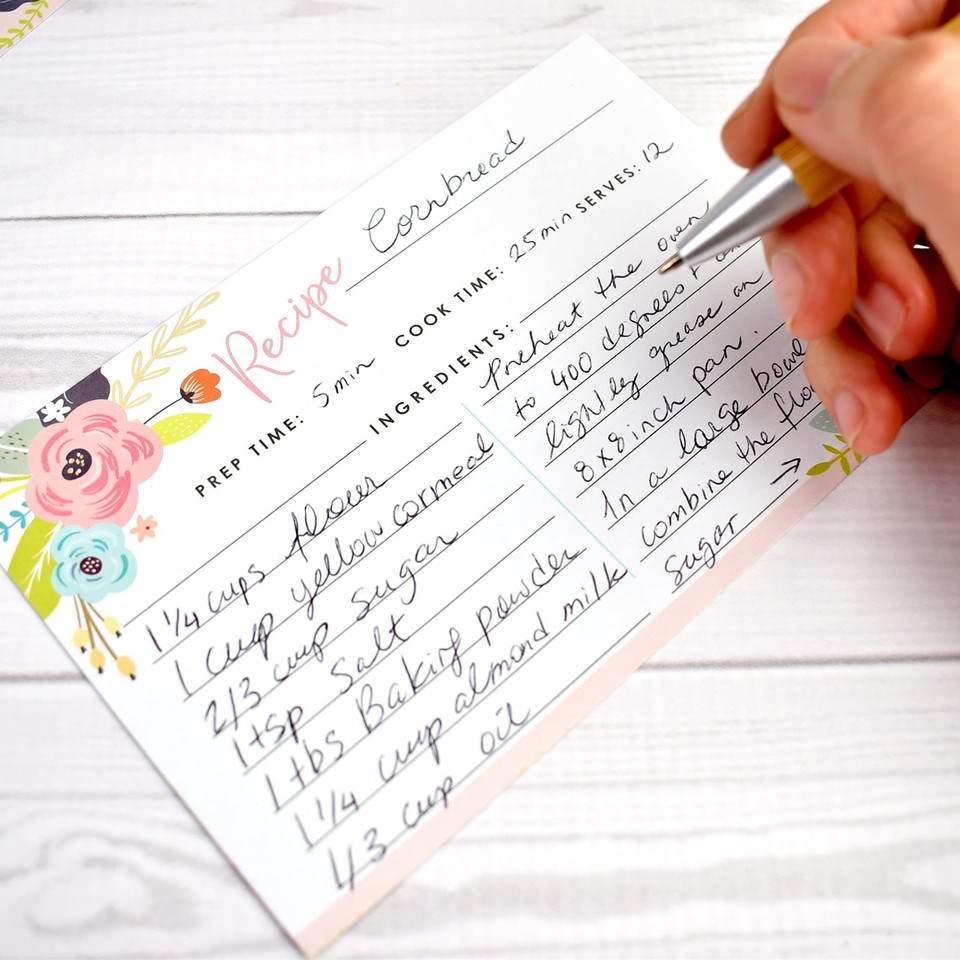 Recipe Cornbread
PREP TIME: 5 min COOK TIME: 25 min SERVES: 12
INGREDIENTS:
1 1/4 cups flour
1 cup yellow cormeal
2/3 cup sugar
1 tsp Salt
1 tbs Baking powder
1 1/4 cup almond milk
1/3 cup oil
Preheat the oven
to 400 degrees F
lightly grease an
8x8 inch pan.
In a large bowl
combine the
sugar →